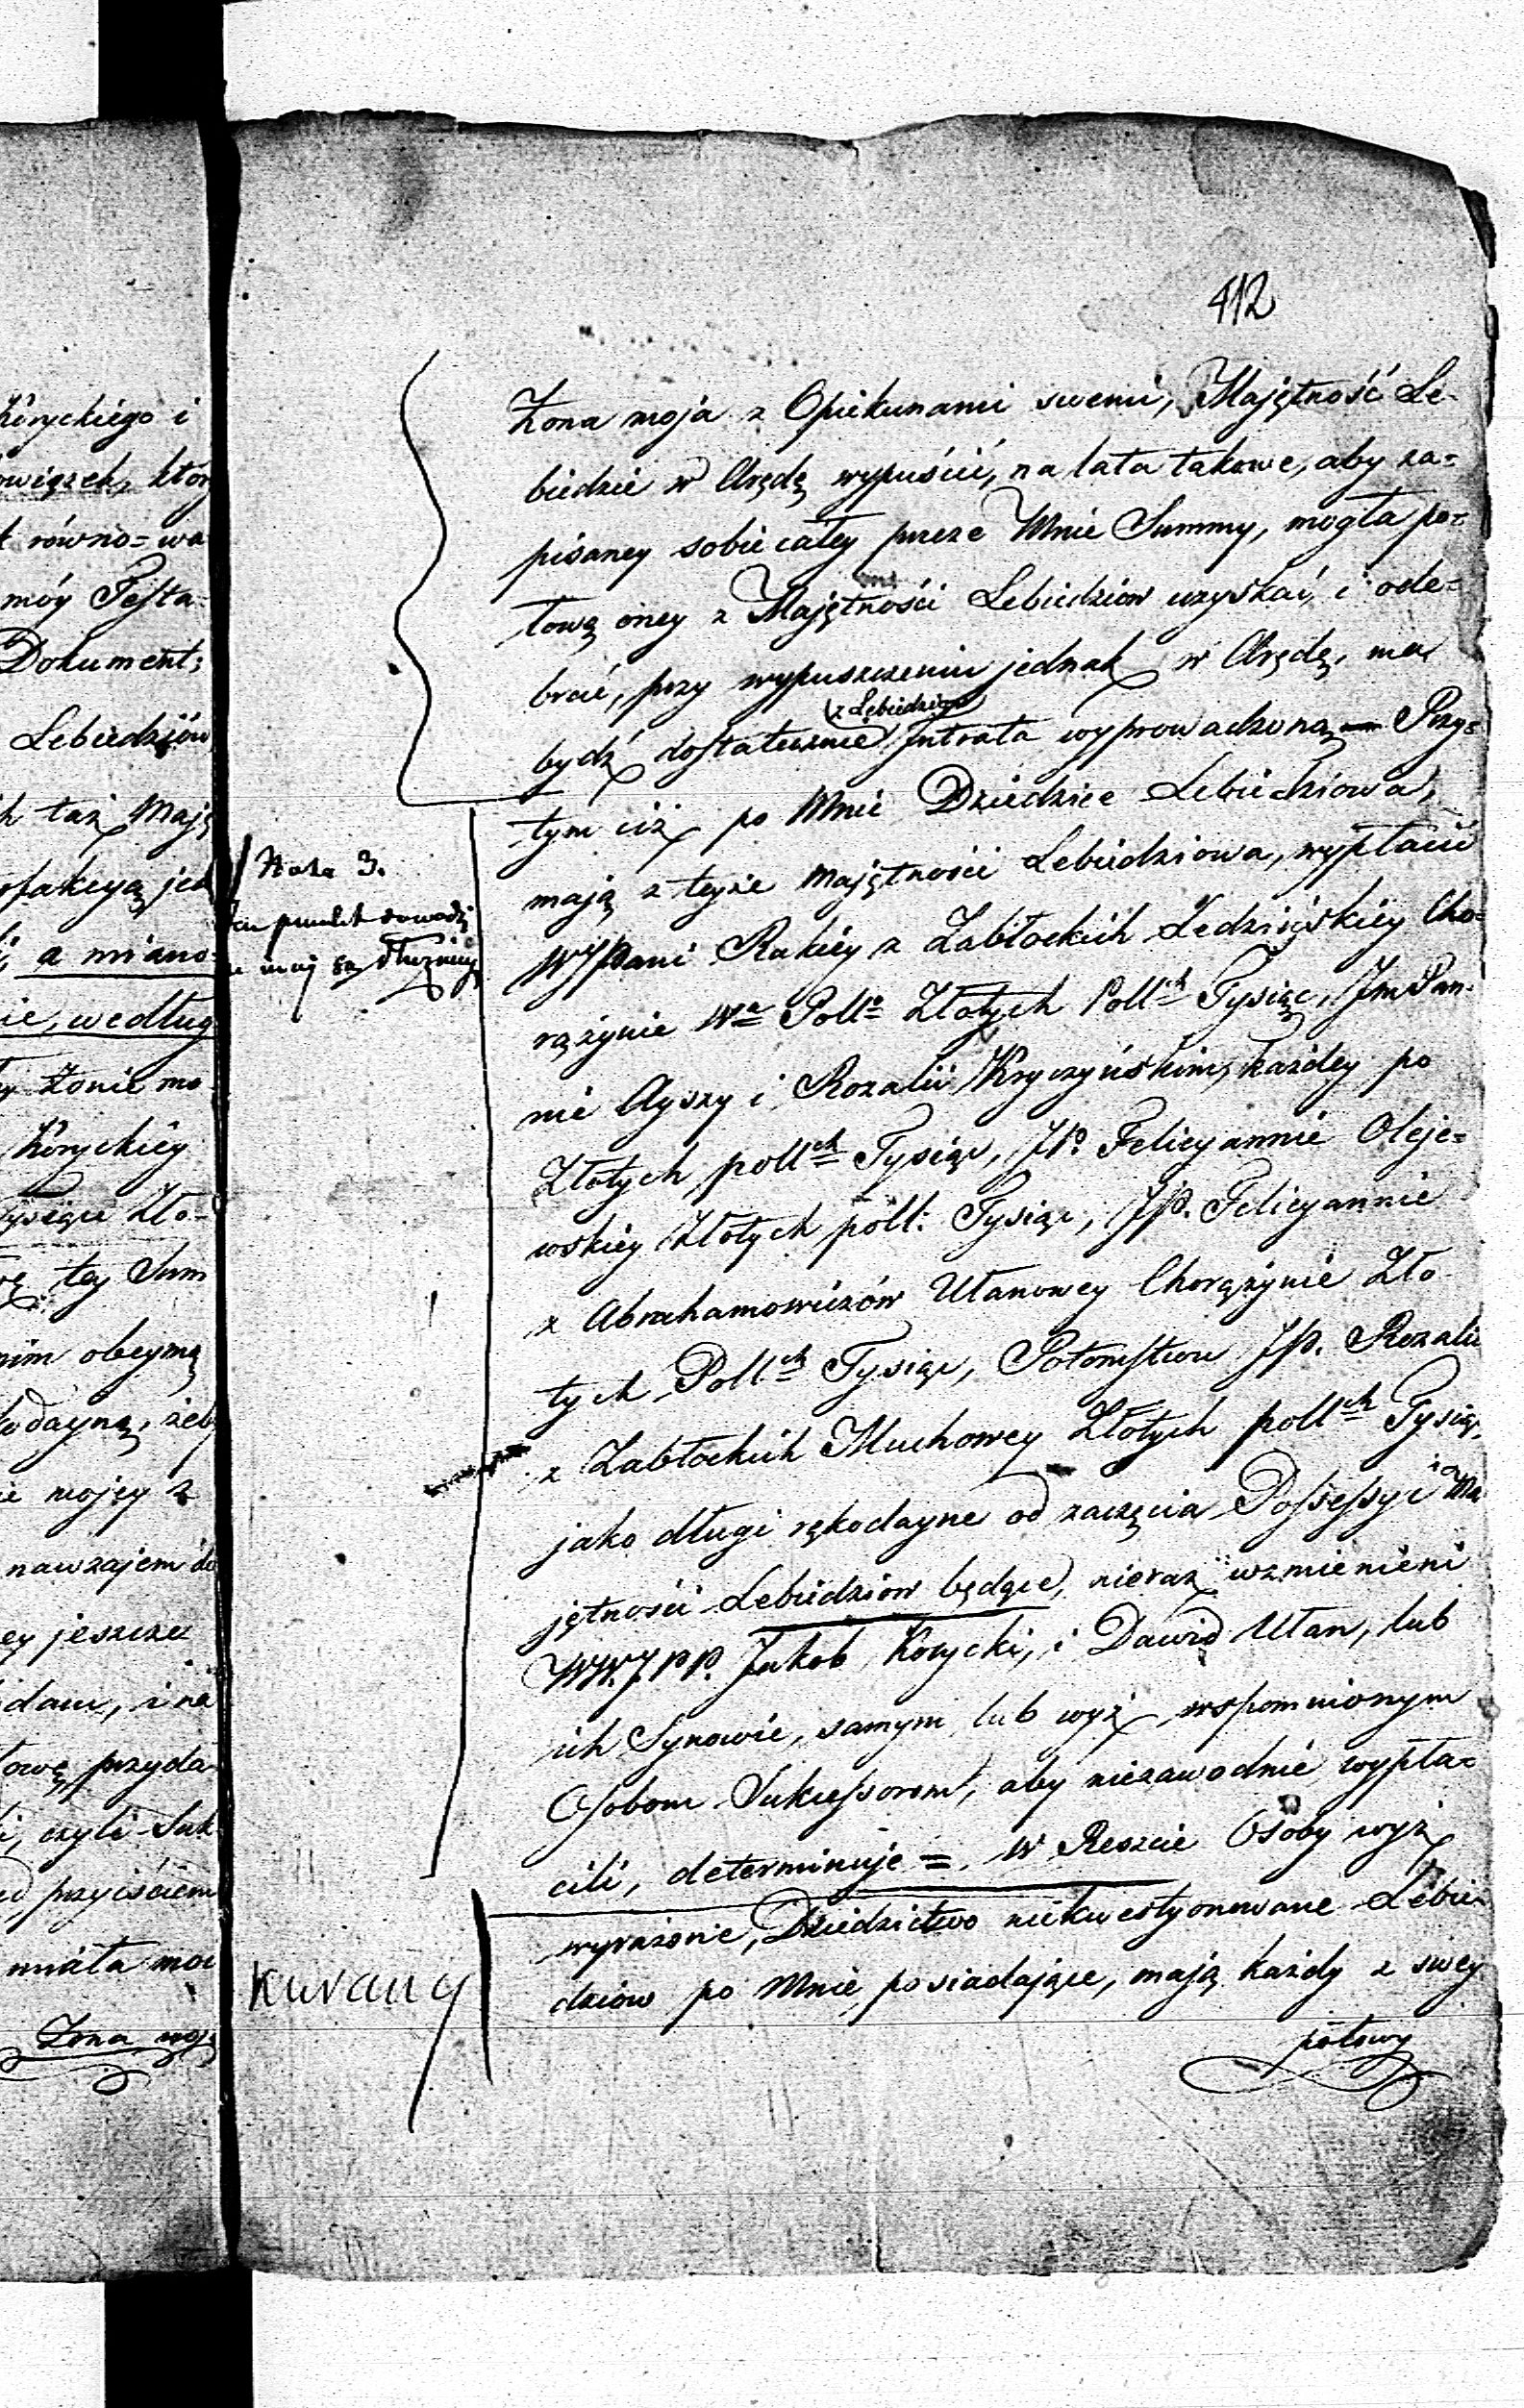 412
Żona moja z Opiekunami swemi, Majętność Le-
biedzie w Arędę wypuścić, na lata takowe, aby za=
pisaney sobie całey przeze Mnie Summy, mogła po=
łową oney z Majętności Lebiedziów uzyskać, i ode=
brać, przy wypuszczeniu jednak w Arędę, ma
(z Lebiedziow)
bydź dostatecznie Intrata wyprowadzona — Przy=
tym iiż po Mnie Dziedzice Lebiedziowa,
mają z teyże Majętności Lebiedziowa, wypłacić
WJPani Rakiey z Zabłockich Ledzińskiey Cho=
rążynie Wa Pollo Złotych Pollch Tysiąc, Jm Pan-
nie Ayszy i Rozalii Kryczyńskim, każdey po
Złotych pollch Tysiąc, JP. Felicyannie Oleje=
wskiey Złotych poll: Tysiąc, JP. Felicyannie
z Abrahamowiczów Ułanowey Chorążynie Zło-
tych Pollch Tysiąc, Potomstwu JP. Rozalii
z Zabłockich Muchowey Złotych pollch Tysiąc,
jako długi rękodayne od zaczęcia Possessyi Ma
jętności Lebiedziow będące, nieraz wzmienieni
WW.JPP. Jakob Korycki, i Dawid Ułan, lub
ich Synowie, samym lub wyż wspomnionym
Osobom Sukcessorom, aby niezawodnie wypła=
cili, determinuje =. W Reszcie Osoby wyż
wyrażone, Dziedzictwo niekwestyonowane Lebie-
dziów po Mnie posiadające, mają każdy z swey
połowy
Nota 3.
ten punkt dowodzi
Kuranq
Koryckiego i
owiązek, któr
równo=wa
móy Testa-
Dokument;
Lebiedziów
taż Maję
a miano=
ie, według
Żonie mo-
Koryckiéy
Tysiące Zło-
tey Sum
nim obeymą
kodayną, żeb
ie mojęy z
nawzajem do
ey jeszcze
idam, i na
łowę przyda
i, czyli Suk
przyiściem
miała moc
Żona moja